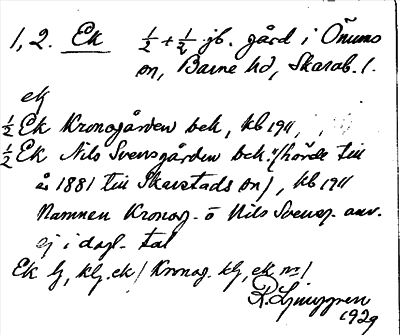 1, 2. Ek ½ + ½ jb. gård i Önums
sn, Barne hd, Skarab. l.
ek
½ Ek Kronogården bek, kb 1911,
½ Ek Nils Svensgården bek. "(hörde till
år 1881 till Skarstads sn), kb 1911
Namnen Kronog. o Nils Svensg. anv.
ej i dagl. tal
Ek lj, klj. ek / Kronog. klj, ek m /
R. Ljunggren
1929